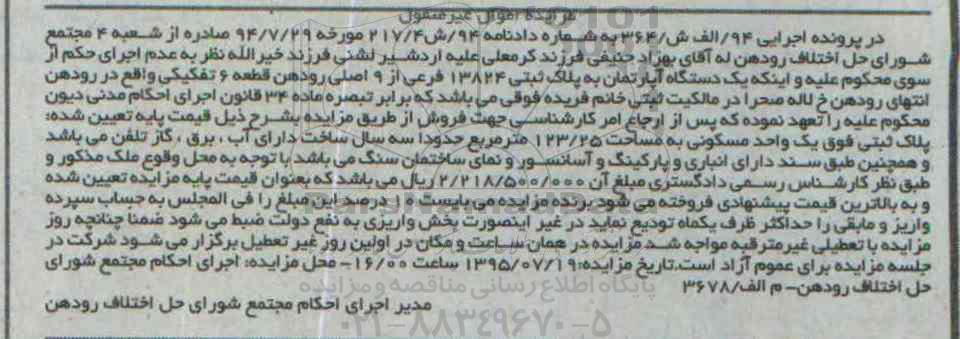 مزایده اموال غیرمنقول
در پرونده اجرایی ۹۴/الف ش/۳۶۴ به شماره دادنامه ۹۴/ش۲۱۷/۴ مورخه ۹۴/۷/۲۹ صادره از شعبه ۴ مجتمع
شورای حل اختلاف رودهن له آقای بهزاد حنیفی فرزند کرمعلی علیه اردشیر لشنی فرزند خیرالله نظر به عدم اجرای حکم از
سوی محکوم علیه و اینکه یک دستگاه آپارتمان به پلاک ثبتی ۱۳۸۲۴ فرعی از ۹ اصلی رودهن قطعه ۶ تفکیکی واقع در رودهن
انتهای رودهن خ لاله صحرا در مالکیت ثبتی خانم فریده فوقی می باشد که برابر تبصره ماده ۳۴ قانون اجرای احکام مدنی دیون
محکوم علیه را تعهد نموده که پس از ارجاع امر کارشناسی جهت فروش از طریق مزایده بشرح ذیل قیمت پایه تعیین شده:
پلاک ثبتی فوق یک واحد مسکونی به مساحت ۱۲۳/۲۵ مترمربع حدودا سه سال ساخت دارای آب ، برق ، گاز تلفن می باشد
و همچنین طبق سند دارای انباری و پارکینگ و آسانسور و نمای ساختمان سنگ می باشد با توجه به محل وقوع ملک مذکور و
طبق نظر کارشناس رسمی دادگستری مبلغ آن ۲/۲۱۸/۵۰۰/۰۰۰ ریال می باشد که بعنوان قیمت پایه مزایده تعیین شده
و به بالاترین قیمت پیشنهادی فروخته می شود برنده مزایده می بایست ۱۰ درصد این مبلغ را فی المجلس به حساب سپرده
واریز و مابقی را حداکثر ظرف یکماه تودیع نماید در غیر اینصورت بخش واریزی به نفع دولت ضبط می شود ضمنا چنانچه روز
مزایده با تعطیلی غیرمترقبه مواجه شد مزایده در همان ساعت و مکان در اولین روز غیر تعطیل برگزار می شود شرکت در
جلسه مزایده برای عموم آزاد است.تاریخ مزایده:۱۳۹۵/۰۷/۱۹ ساعت ۱۶/۰۰- محل مزایده: اجرای احکام مجتمع شورای
حل اختلاف رودهن- م الف/۳۶۷۸
پایگاه اطلاع رسانی مناقصه و مزایده
مدیر اجرای احکام مجتمع شورای حل اختلاف رودهن
۰۲۱-۸۸۳۴۹۶۷۰-۵